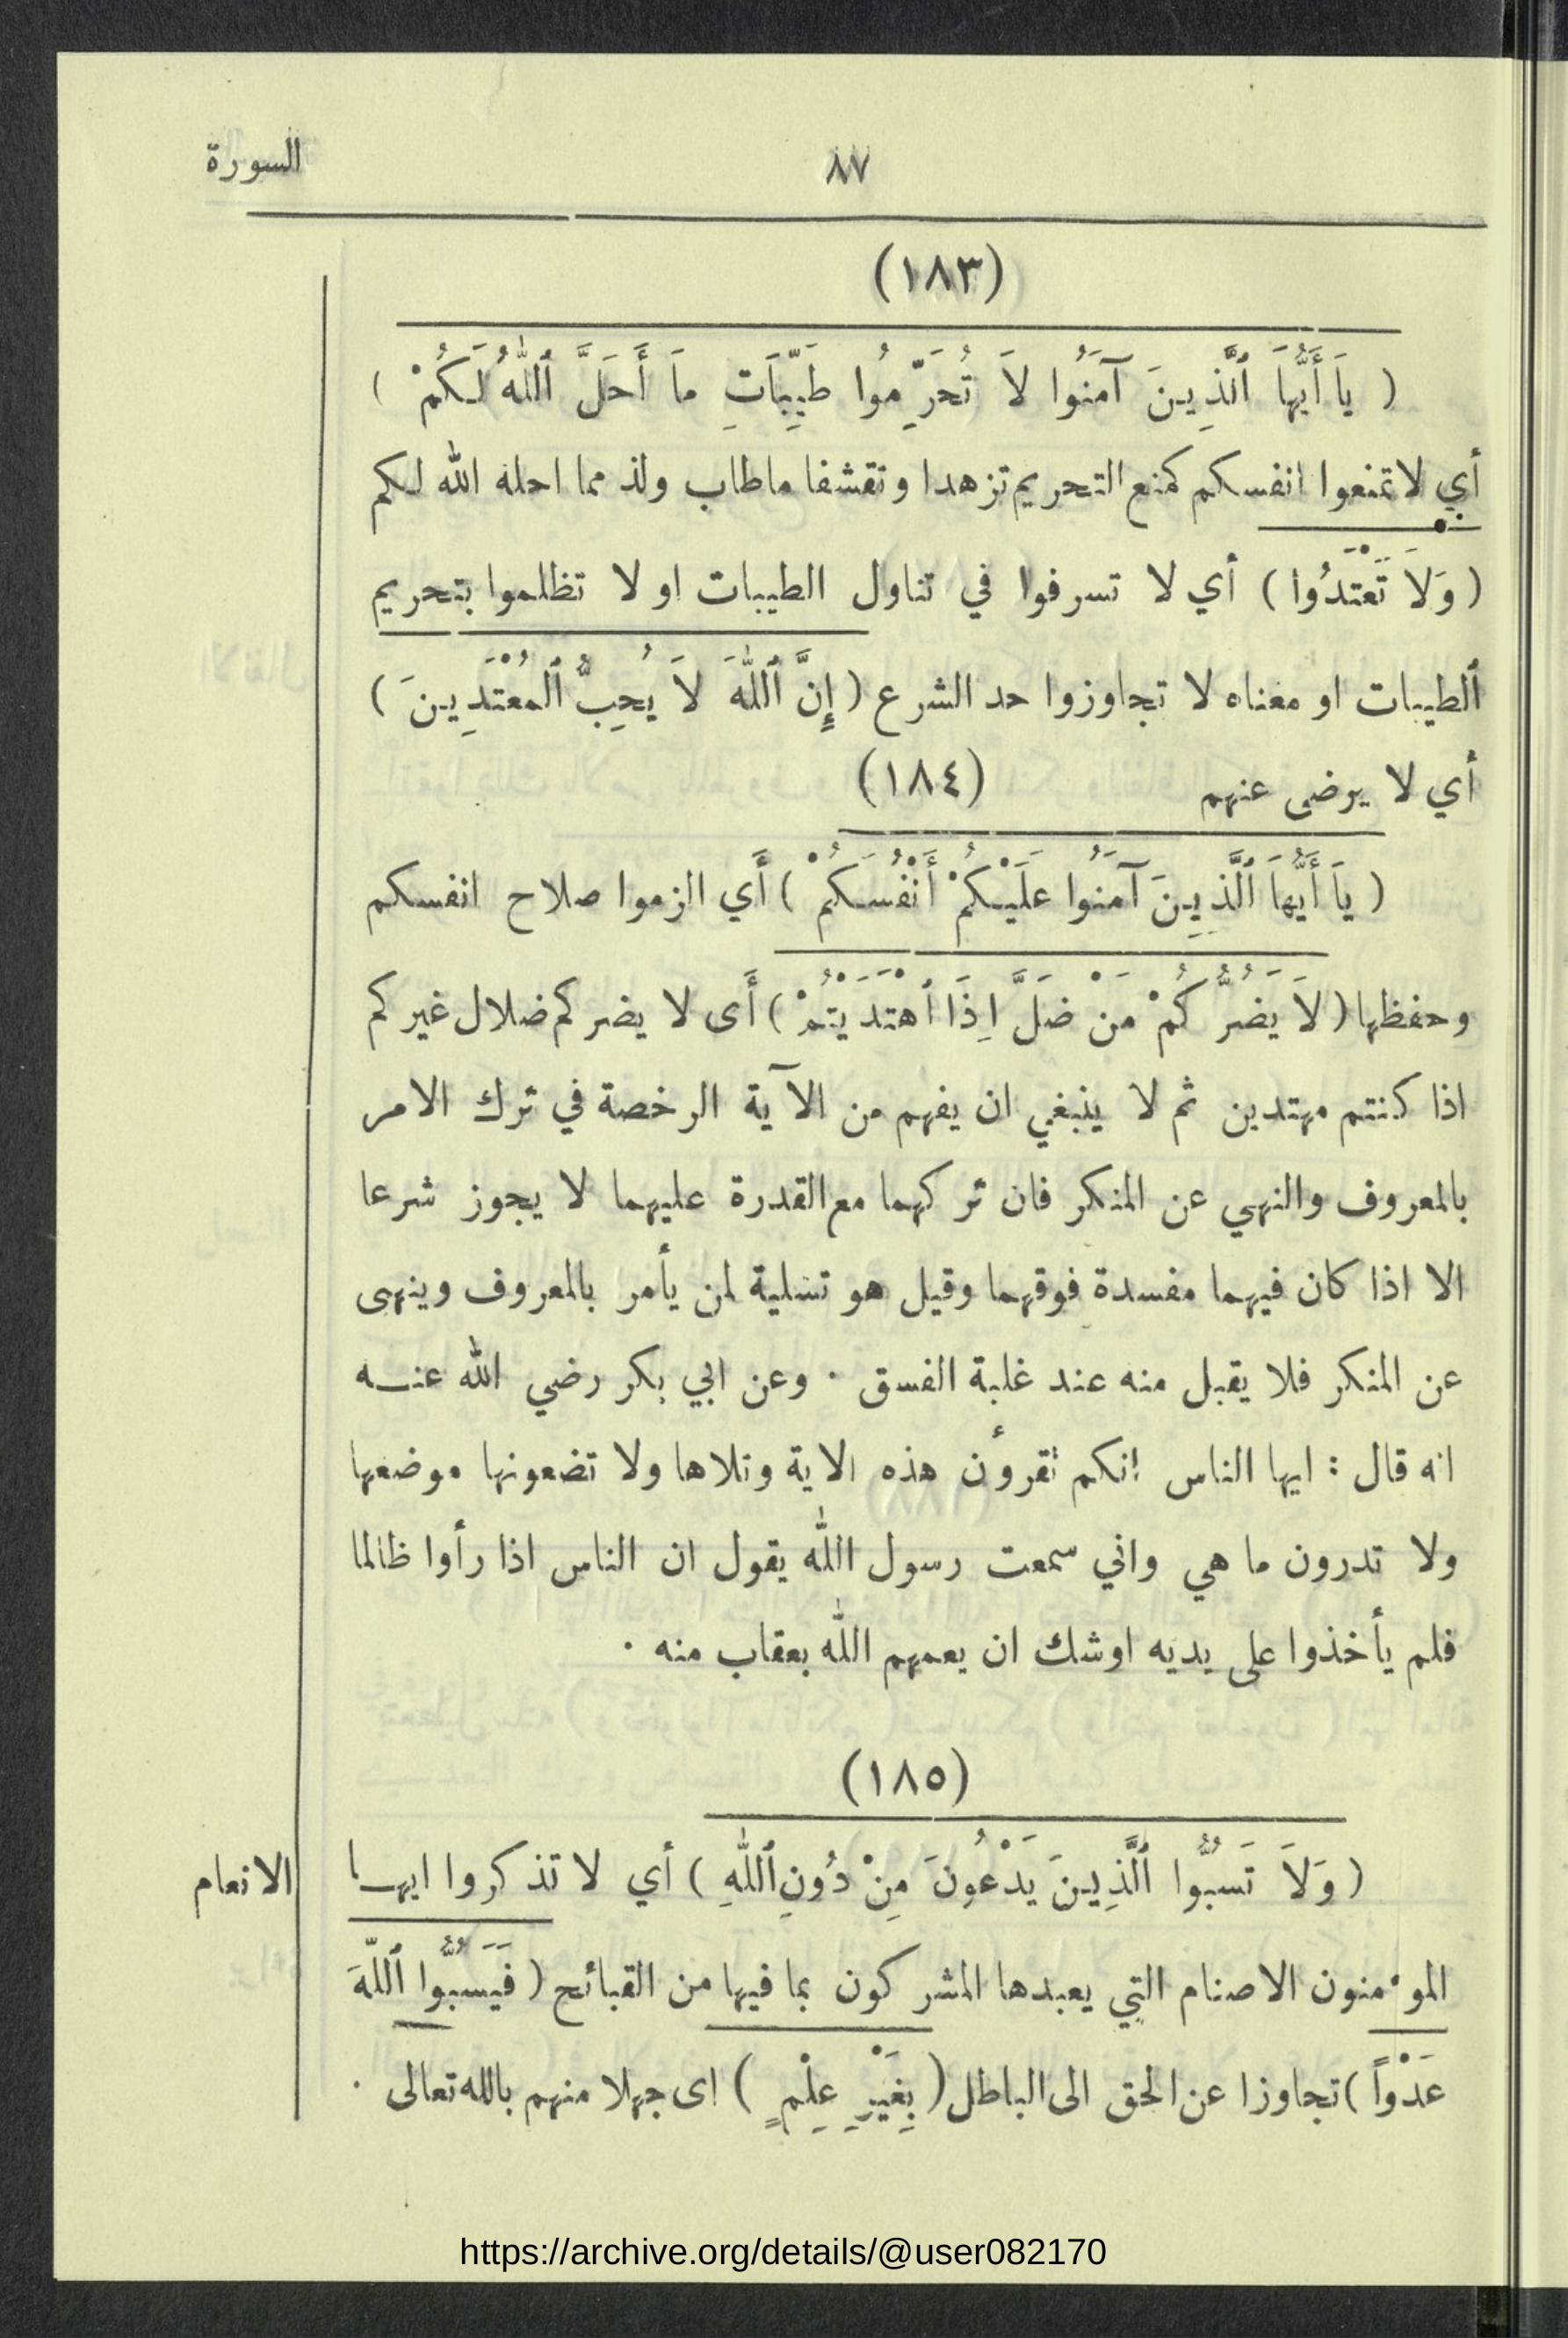 ٨٧ السورة
(١٨٣)
( يَا أَيُّهَا ٱلَّذِينَ آمَنُوا لَا تُحَرِّمُوا طَيِّبَاتِ مَا أَحَلَّ ٱللّٰهُ لَكُمْ )
أي لا تمنعوا انفسكم كمنع التحريم تزهدا وتقشفا ما طاب ولذ مما احله الله لكم
( وَلَا تَعْتَدُوا ) أي لا تسرفوا في تناول الطيبات او لا تظلموا بتحريم
ٱلطيبات او معناه لا تجاوزوا حد الشرع ( إِنَّ ٱللّٰهَ لَا يُحِبُّ ٱلْمُعْتَدِينَ )
أي لا يرضى عنهم (١٨٤)
( يَا أَيُّهَا ٱلَّذِينَ آمَنُوا عَلَيْكُمْ أَنْفُسَكُمْ ) أَي الزموا صلاح انفسكم
وحفظها ( لَا يَضُرُّكُمْ مَنْ ضَلَّ اِذَا ٱهْتَدَيْتُمْ ) أَى لا يضركم ضلال غيركم
اذا كنتم مهتدين ثم لا ينبغي ان يفهم من الآية الرخصة في ترك الامر
بالمعروف والنهي عن المنكر فان تركهما مع القدرة عليهما لا يجوز شرعا
الا اذا كان فيهما مفسدة فوقهما وقيل هو تسلية لمن يأمر بالمعروف وينهى
عن المنكر فلا يقبل منه عند غلبة الفسق . وعن ابي بكر رضي الله عنه
انه قال : ايها الناس انكم تقرؤن هذه الاية وتلاها ولا تضعونها موضعها
ولا تدرون ما هي واني سمعت رسول الله يقول ان الناس اذا رأوا ظالما
فلم يأخذوا على يديه اوشك ان يعمهم الله بعقاب منه .
(١٨٥)
( وَلَا تَسُبُّوا ٱلَّذِينَ يَدْعُونَ مِنْ دُونِ ٱللّٰهِ ) أي لا تذكروا ايها الانعام
المؤمنون الاصنام التي يعبدها المشركون بما فيها من القبائح ( فَيَسُبُّوا ٱللّٰهَ
عَدْوًا ) تجاوزا عن الحق الى الباطل ( بِغَيْرِ عِلْمٍ ) اى جهلا منهم بالله تعالى .
https://archive.org/details/@user082170